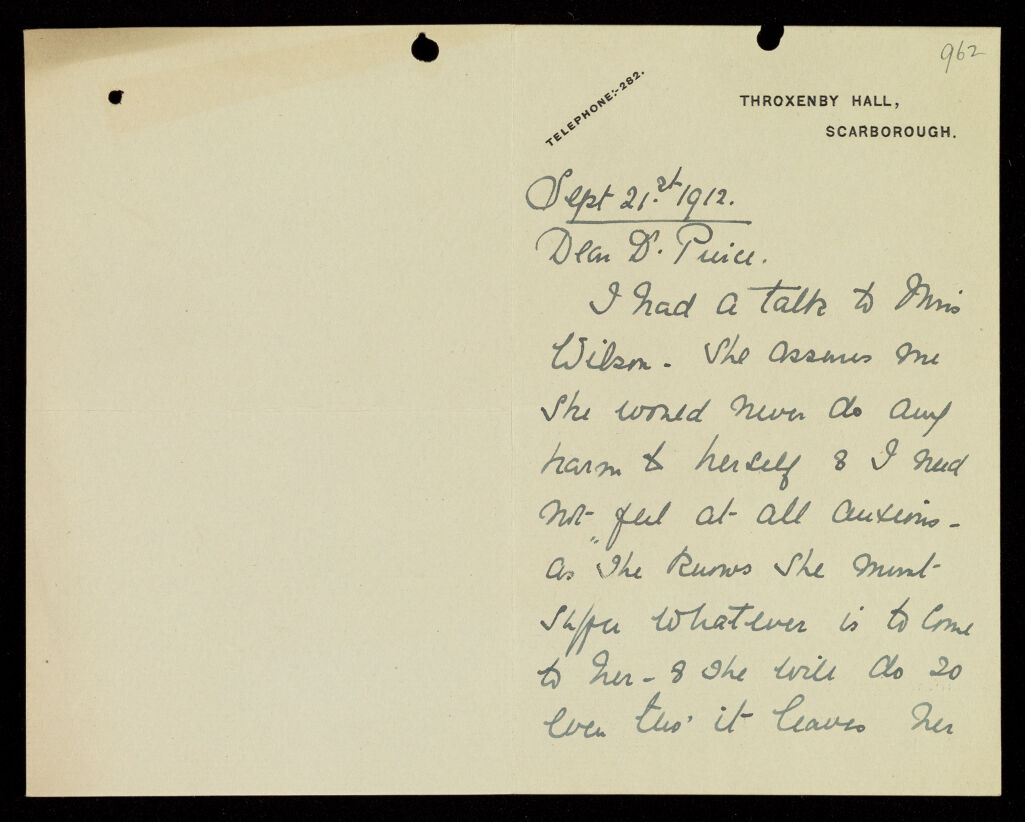 962
TELEPHONE:-282.
THROXENBY HALL,
SCARBOROUGH.
Sept 21.st 1912.
Dear Dr. Pierce.
I had a talk to Miss
Wilson - She assures me
she would never do any
harm to herself & I need
not feel at all anxious -
as "she knows she must
suffer whatever is to come
to her - & she will do so
even tho' it leaves her